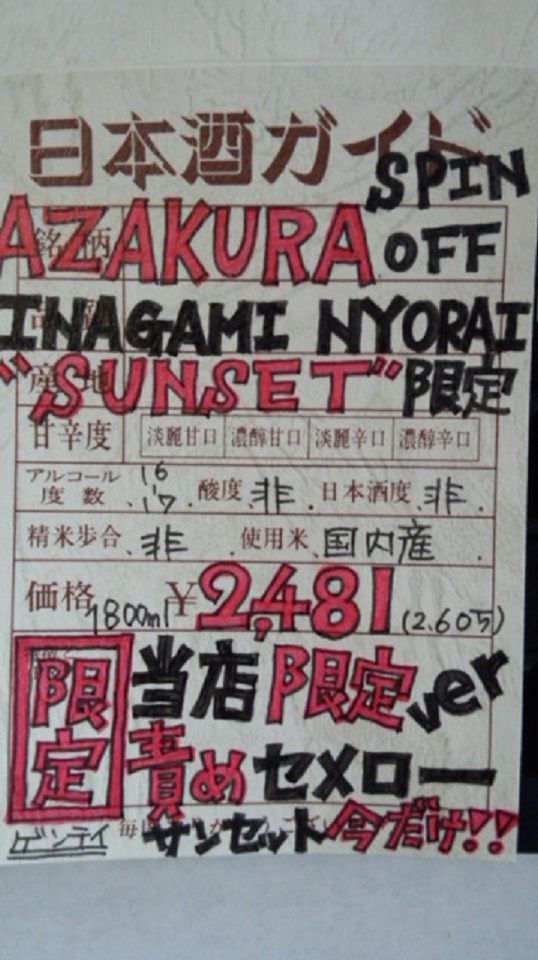 日本酒ガイド
SPIN
銘柄 AZAKURA OFF
INAGAMI NYORAI
産地 "SUNSET" 限定
甘辛度 淡麗甘口 濃醇甘口 淡麗辛口 濃醇辛口
アルコール度数、16〜17. 酸度、非. 日本酒度、非.
精米歩合、非 .使用米、国内産.
価格 1800ml ¥2,481 (2.605)
限定 当店限定ver
責め セメロー
ゲンテイ サンセット 今だけ!!